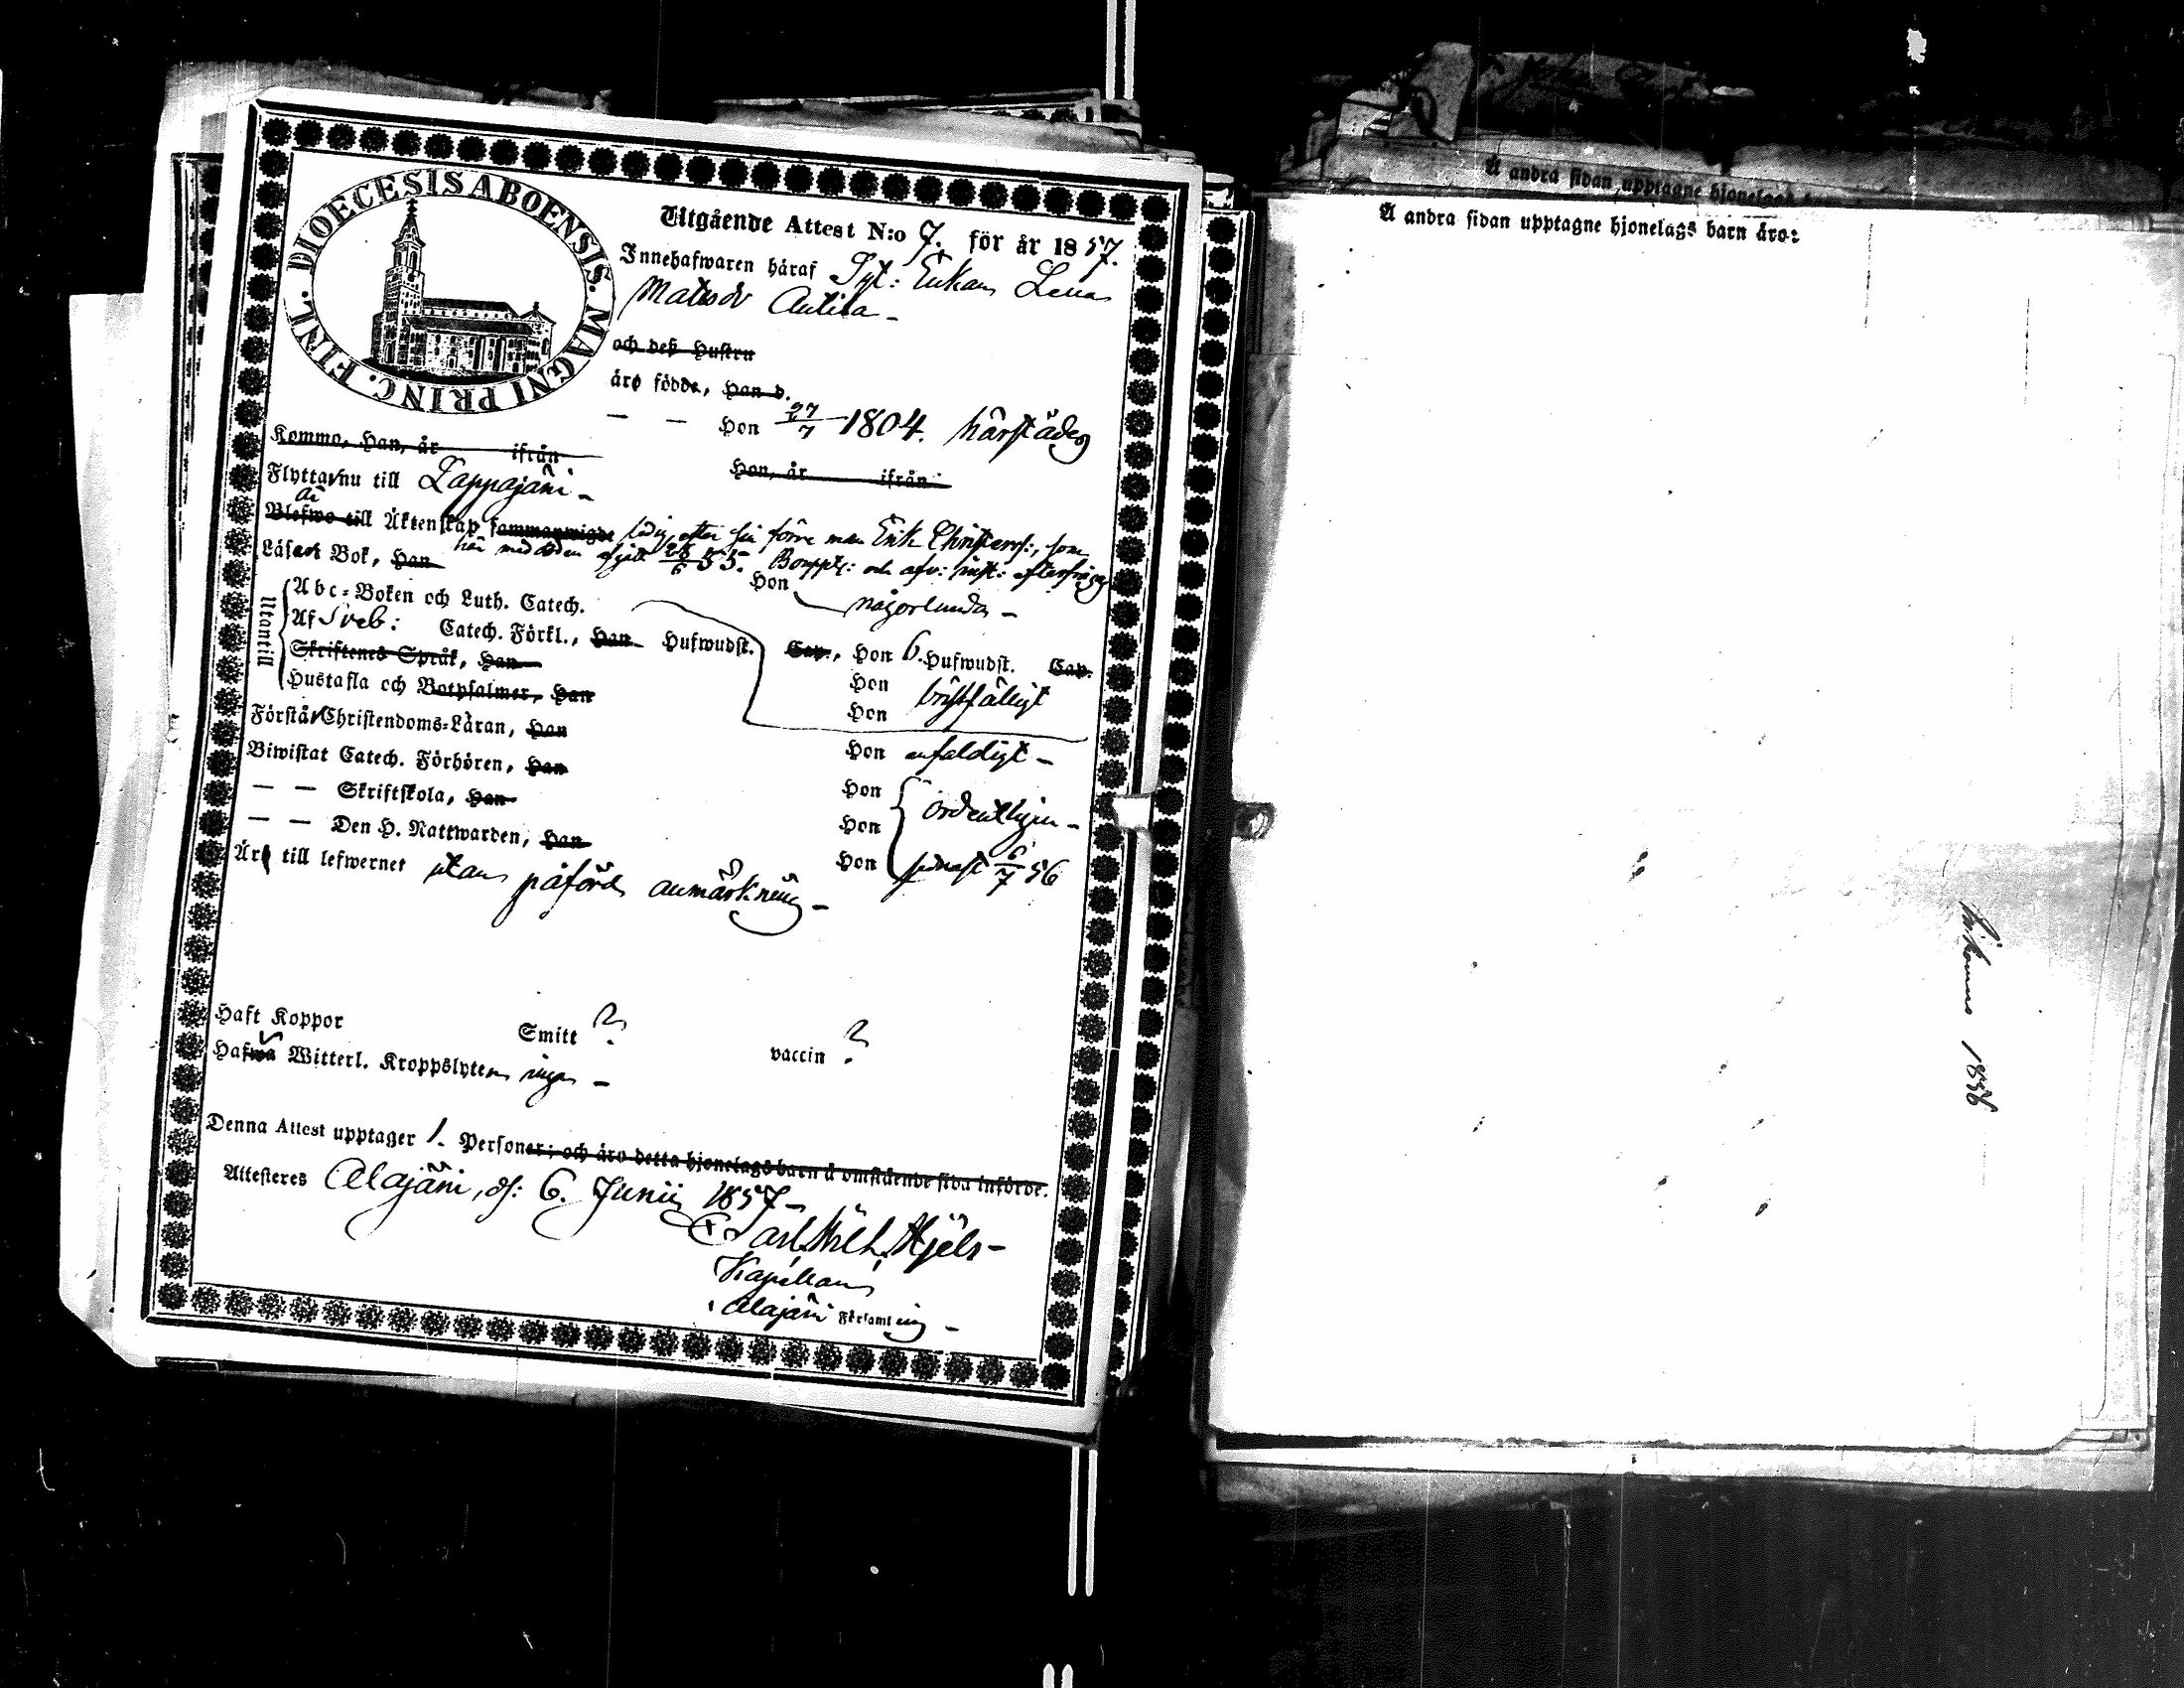 DIOECESIS ABOENSIS. MAGNI PRINC. FINL.
Utgående Attest N:o 7. för år 1857.
Innehafwaren häraf Syt: Enkan Lena
Matsdr Antila -
och deß Hustru
äro födde, Han d.
— — Hon 27/7 1804. härstädes
Kommo, Han, år ifrån
Hon, år ifrån
Flyttar nu till Lappajärvi -
är
Blefwo till Äktenskap sammanwigde ledig efter sin förre man Erik Christerss:, som
här med döden afgått 28/6 55. Bouppt: och afv: inst: efterfrågas
Läser i Bok, Han Hon någorlunda -
Utantill
Abc-Boken och Luth. Catech.
Af Sveb: Catech. Förkl., Han Hufwudst. Cap., Hon 6. Hufwudst. Cap.
Skriftenes Språk, Han Hon bristfälligt
Hustafla och Botpsalmer, Han Hon
Förstår Christendoms-Läran, Han Hon enfaldigt -
Biwistat Catech. Förhören, Han Hon
— — Skriftskola, Han Hon ordentligen -
— — Den H. Nattwarden, Han Hon senast 6/7 56
Äro till lefwernet utan påförd anmärkning -
Haft Koppor Smitt ? vaccin ?
Hafwa Witterl. Kroppslyten inga -
Denna Attest upptager 1. Personer; och äro detta hjonelags barn å omstående sida införde.
Attesteres Alajärvi, d: 6. Junii 1857 -
Carl Wilh. Hjelt -
Kapellan
i Alajärvi Församling -
Å andra sidan upptagne hjonelags barn
Å andra sidan upptagne hjonelags barn äro:
Inkomne 1856